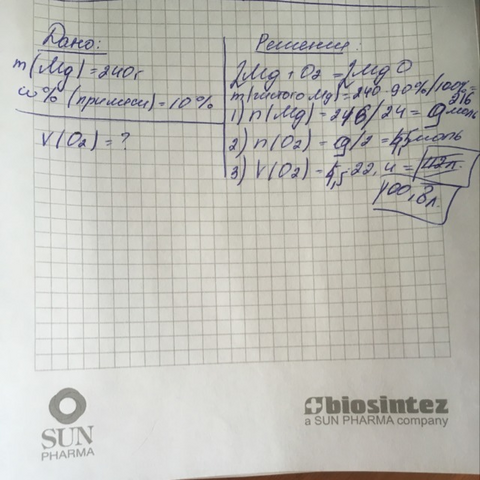 Дано:
m(Mg) = 240г
ω% (примеси) = 10%
V(O2) = ?
Решение:
2Mg + O2 = 2MgO
m(чистого Mg) = 240 · 90%/100% =
216
1) n(Mg) = 216/24 = 9 моль
2) n(O2) = 9/2 = 4,5 моль
3) V(O2) = 4,5 · 22,4 = 112л.
100,8 л.
SUN
PHARMA
biosintez
a SUN PHARMA company